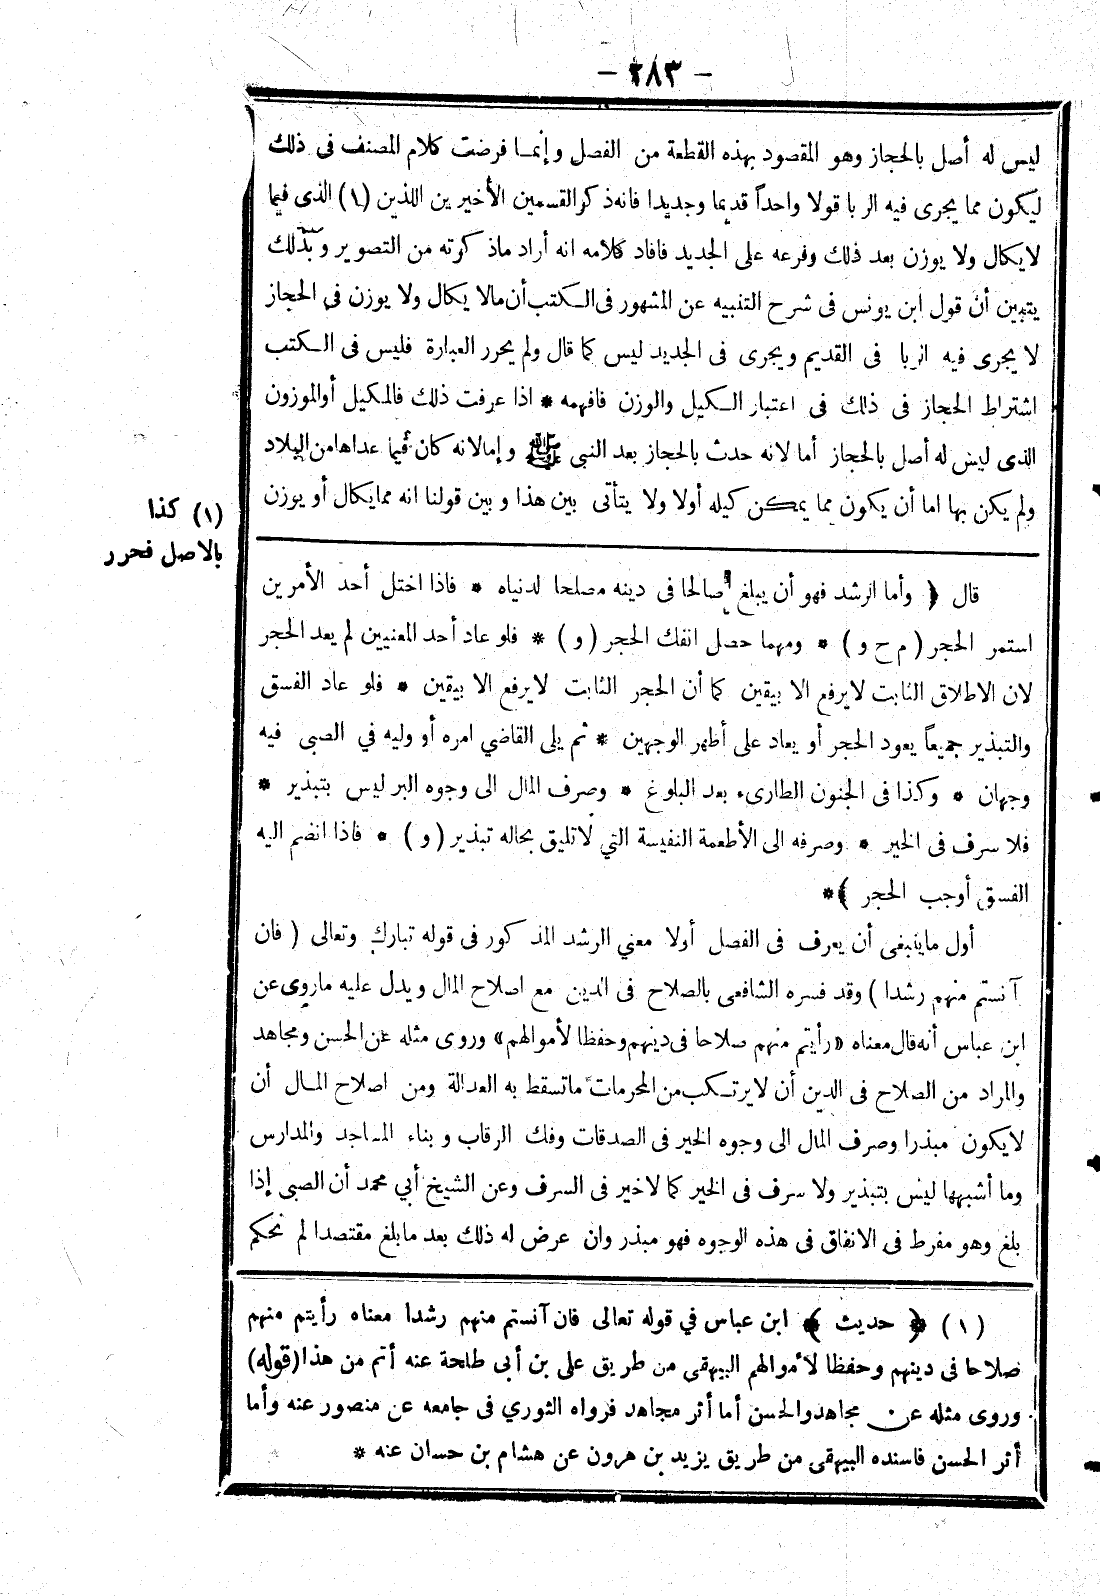 — ٢٨٣ —
ليس له أصل بالحجاز وهو المقصود بهذه القطعة من الفصل وإنمـا فرضت كلام المصنف فى ذلك
ليكون مما يجرى فيه الربا قولا واحداً قديما وجديدا فانه ذكر القسمين الأخيرين اللذين (١) الذى فيما
لايكال ولا يوزن بعد ذلك وفرعه على الجديد فافاد كلامه انه أراد ماذكرته من التصوير وبذلك
يتبين أن قول ابن يونس فى شرح التنبيه عن المشهور فى الـكتب أن مالا يكال ولا يوزن فى الحجاز
لا يجرى فيه الربا فى القديم ويجرى فى الجديد ليس كما قال ولم يحرر العبارة فليس فى الـكتب
اشتراط الحجاز فى ذلك فى اعتبار الـكيل والوزن فافهمه * اذا عرفت ذلك فالمكيل أوالموزون
الذى ليس له أصل بالحجاز أما لانه حدث بالحجاز بعد النبى ﷺ وإمالانه كان فيما عداهامن البلاد
ولم يكن بها اما أن يكون مما يمـكن كيله أولا ولا يتأتى بين هذا وبين قولنا انه ممايكال أو يوزن
(١) كذا
بالاصل فحرر
قال ﴿ وأما الرشد فهو أن يبلغ صالحا فى دينه مصلحا لدنياه * فاذا اختل أحد الأمرين
استمر الحجر ( م ح و ) * ومهما حصل انفك الحجر ( و ) * فلو عاد أحد المعنيين لم يعد الحجر
لان الاطلاق الثابت لايرفع الا بيقين كما أن الحجر الثابت لايرفع الا بيقين * فلو عاد الفسق
والتبذير جميعاً يعود الحجر أو يعاد على أظهر الوجهين * ثم يلى القاضي امره أو وليه في الصبى فيه
وجهان * وكذا فى الجنون الطارىء بعد البلوغ * وصرف المال الى وجوه البر ليس بتبذير *
فلا سرف فى الخير * وصرفه الى الأطعمة النفيسة التي لاتليق بحاله تبذير ( و ) * فاذا انضم اليه
الفسق أوجب الحجر ﴾*
أول ماينبغى أن يعرف فى الفصل أولا معني الرشد المذكور فى قوله تبارك وتعالى ( فان
آنستم منهم رشدا ) وقد فسره الشافعى بالصلاح فى الدين مع اصلاح المال ويدل عليه ماروى عن
ابن عباس أنه قال معناه «رأيتم منهم صلاحا فى دينهم وحفظا لأموالهم» وروى مثله عن الحسن ومجاهد
والمراد من الصلاح فى الدين أن لايرتـكب من المحرمات ماتسقط به العدالة ومن اصلاح المـال أن
لايكون مبذرا وصرف المال الى وجوه الخير فى الصدقات وفك الرقاب وبناء المساجد والمدارس
وما أشبهها ليس بتبذير ولا سرف فى الخير كما لاخير فى السرف وعن الشيخ أبي محمد أن الصبى إذا
بلغ وهو مفرط فى الانفاق فى هذه الوجوه فهو مبذر وان عرض له ذلك بعد مابلغ مقتصدا لم نحكم
( ١ ) ﴿ حديث ﴾ ابن عباس في قوله تعالى فان آنستم منهم رشدا معناه رأيتم منهم
صلاحا فى دينهم وحفظا لأموالهم البيهقى من طريق على بن أبى طلحة عنه أتم من هذا (قوله)
وروى مثله عن مجاهد والحسن أما أثر مجاهد فرواه الثوري فى جامعه عن منصور عنه وأما
أثر الحسن فاسنده البيهقى من طريق يزيد بن هرون عن هشام بن حسان عنه *